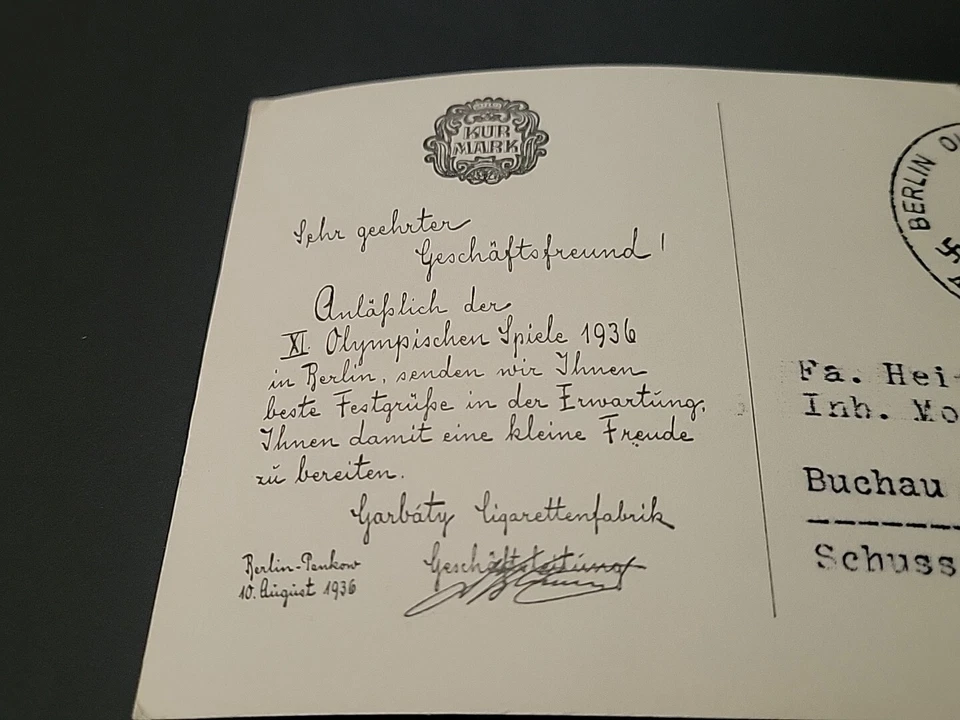 KUR
MARK
Sehr geehrter
Geschäftsfreund!
Anläßlich der
XI. Olympischen Spiele 1936
in Berlin, senden wir Ihnen
beste Festgrüße in der Erwartung,
Ihnen damit eine kleine Freude
zu bereiten.
Garbáty Cigarettenfabrik
Geschäftsleitung
Berlin-Pankow
10. August 1936
BERLIN
Fa. Hei-
Inh. Mo
Buchau
Schuss